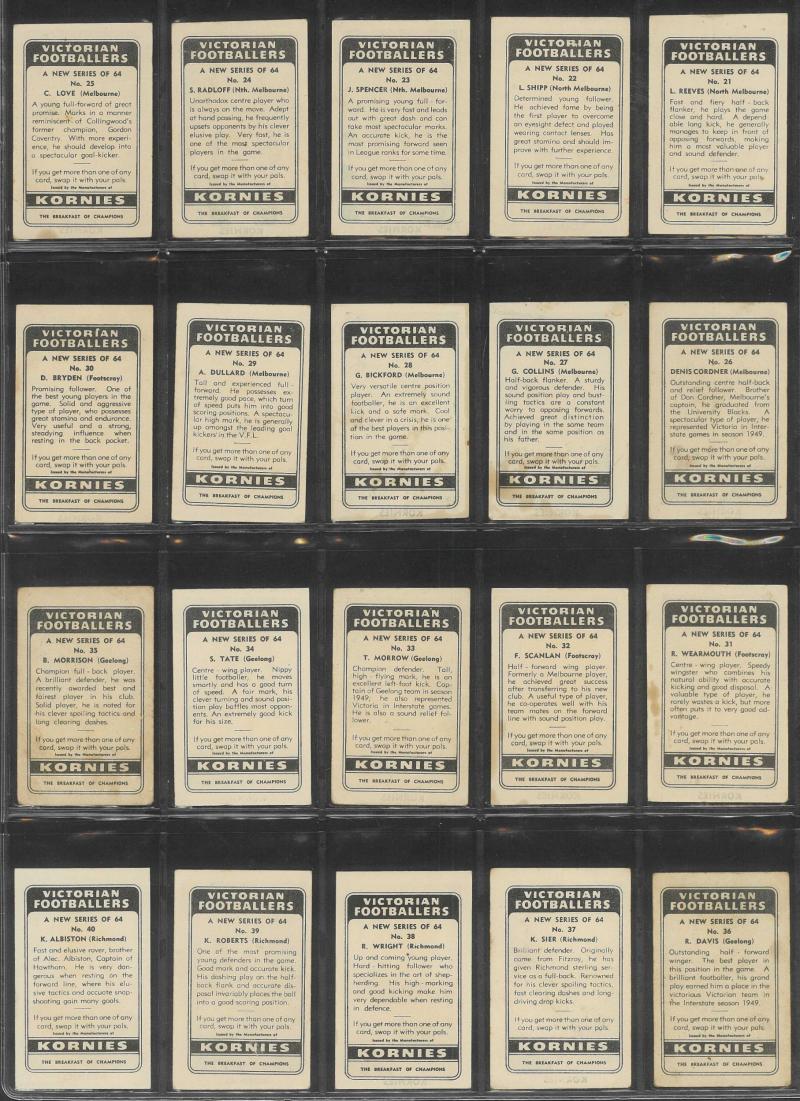 VICTORIAN
FOOTBALLERS
A NEW SERIES OF 64
No. 25
C. LOVE (Melbourne)
A young full-forward of great
promise. Marks in a manner
reminiscent of Collingwood's
former champion, Gordon
Coventry. With more experi-
ence, he should develop into
a spectacular goal-kicker.
If you get more than one of any
card, swap it with your pals.
Issued by the Manufacturers of
KORNIES
THE BREAKFAST OF CHAMPIONS
VICTORIAN
FOOTBALLERS
A NEW SERIES OF 64
No. 24
S. RADLOFF (Nth. Melbourne)
Unorthodox centre player who
is always on the move. Adept
at hand passing, he frequently
upsets opponents by his clever
elusive play. Very fast, he is
one of the most spectacular
players in the game.
If you get more than one of any
card, swap it with your pals.
Issued by the Manufacturers of
KORNIES
THE BREAKFAST OF CHAMPIONS
VICTORIAN
FOOTBALLERS
A NEW SERIES OF 64
No. 23
J. SPENCER (Nth. Melbourne)
A promising young full - for-
ward. He is very fast and leads
out with great dash and can
take most spectacular marks.
An accurate kick, he is the
most promising forward seen
in League ranks for some time.
If you get more than one of any
card, swap it with your pals.
Issued by the Manufacturers of
KORNIES
THE BREAKFAST OF CHAMPIONS
VICTORIAN
FOOTBALLERS
A NEW SERIES OF 64
No. 22
L. SHIPP (North Melbourne)
Determined young follower.
He achieved fame by being
the first player to overcome
an eyesight defect and played
wearing contact lenses. Has
great stamina and should im-
prove with further experience.
If you get more than one of any
card, swap it with your pals.
Issued by the Manufacturers of
KORNIES
THE BREAKFAST OF CHAMPIONS
VICTORIAN
FOOTBALLERS
A NEW SERIES OF 64
No. 21
L. REEVES (North Melbourne)
Fast and fiery half - back
flanker, he plays the game
close and hard. A depend-
able long kick, he generally
manages to keep in front of
opposing forwards, making
him a most valuable player
and sound defender.
If you get more than one of any
card, swap it with your pals.
Issued by the Manufacturers of
KORNIES
THE BREAKFAST OF CHAMPIONS
VICTORIAN
FOOTBALLERS
A NEW SERIES OF 64
No. 30
D. BRYDEN (Footscray)
Promising follower. One of
the best young players in the
game. Solid and aggressive
type of player, who possesses
great stamina and endurance.
Very useful and a strong,
steadying influence when
resting in the back pocket.
If you get more than one of any
card, swap it with your pals.
Issued by the Manufacturers of
KORNIES
THE BREAKFAST OF CHAMPIONS
VICTORIAN
FOOTBALLERS
A NEW SERIES OF 64
No. 29
A. DULLARD (Melbourne)
Tall and experienced full -
forward. He possesses ex-
tremely good pace, which turn
of speed puts him into good
scoring positions. A spectac-
ular high mark, he is generally
up amongst the leading goal
kickers in the V.F.L.
If you get more than one of any
card, swap it with your pals.
Issued by the Manufacturers of
KORNIES
THE BREAKFAST OF CHAMPIONS
VICTORIAN
FOOTBALLERS
A NEW SERIES OF 64
No. 28
G. BICKFORD (Melbourne)
Very versatile centre position
player. An extremely sound
footballer, he is an excellent
kick and a safe mark. Cool
and clever in a crisis, he is one
of the best players in this posi-
tion in the game.
If you get more than one of any
card, swap it with your pals.
Issued by the Manufacturers of
KORNIES
THE BREAKFAST OF CHAMPIONS
VICTORIAN
FOOTBALLERS
A NEW SERIES OF 64
No. 27
G. COLLINS (Melbourne)
Half-back flanker. A sturdy
and vigorous defender. His
sound position play and bust-
ling tactics are a constant
worry to opposing forwards.
Achieved great distinction
by playing in the same team
and in the same position as
his father.
If you get more than one of any
card, swap it with your pals.
Issued by the Manufacturers of
KORNIES
THE BREAKFAST OF CHAMPIONS
VICTORIAN
FOOTBALLERS
A NEW SERIES OF 64
No. 26
DENIS CORDNER (Melbourne)
Outstanding centre half-back
and relief follower. Brother
of Don Cordner, Melbourne's
captain, he graduated from
the University Blacks. A
spectacular type of player, he
represented Victoria in Inter-
state games in season 1949.
If you get more than one of any
card, swap it with your pals.
Issued by the Manufacturers of
KORNIES
THE BREAKFAST OF CHAMPIONS
VICTORIAN
FOOTBALLERS
A NEW SERIES OF 64
No. 35
B. MORRISON (Geelong)
Champion full - back player.
A brilliant defender, he was
recently awarded best and
fairest player in his club.
Solid player, he is noted for
his clever spoiling tactics and
long clearing dashes.
If you get more than one of any
card, swap it with your pals.
Issued by the Manufacturers of
KORNIES
THE BREAKFAST OF CHAMPIONS
VICTORIAN
FOOTBALLERS
A NEW SERIES OF 64
No. 34
S. TATE (Geelong)
Centre - wing player. Nippy
little footballer, he moves
smartly and has a good turn
of speed. A fair mark, his
clever turning and sound posi-
tion play baffles most oppon-
ents. An extremely good kick
for his size.
If you get more than one of any
card, swap it with your pals.
Issued by the Manufacturers of
KORNIES
THE BREAKFAST OF CHAMPIONS
VICTORIAN
FOOTBALLERS
A NEW SERIES OF 64
No. 33
T. MORROW (Geelong)
Champion defender. Tall,
high - flying mark, he is an
excellent left-foot kick. Cap-
tain of Geelong team in season
1949, he also represented
Victoria in Interstate games.
He is also a sound relief fol-
lower.
If you get more than one of any
card, swap it with your pals.
Issued by the Manufacturers of
KORNIES
THE BREAKFAST OF CHAMPIONS
VICTORIAN
FOOTBALLERS
A NEW SERIES OF 64
No. 32
F. SCANLAN (Footscray)
Half - forward wing player.
Formerly a Melbourne player,
he achieved great success
after transferring to his new
club. A useful type of player,
he co-operates well with his
team mates on the forward
line with sound position play.
If you get more than one of any
card, swap it with your pals.
Issued by the Manufacturers of
KORNIES
THE BREAKFAST OF CHAMPIONS
VICTORIAN
FOOTBALLERS
A NEW SERIES OF 64
No. 31
R. WEARMOUTH (Footscray)
Centre - wing player. Speedy
wingster who combines his
natural ability with accurate
kicking and good disposal. A
valuable type of player, he
rarely wastes a kick, but more
often puts it to very good ad-
vantage.
If you get more than one of any
card, swap it with your pals.
Issued by the Manufacturers of
KORNIES
THE BREAKFAST OF CHAMPIONS
VICTORIAN
FOOTBALLERS
A NEW SERIES OF 64
No. 40
K. ALBISTON (Richmond)
Fast and elusive rover, brother
of Alec. Albiston, Captain of
Hawthorn. He is very dan-
gerous when resting on the
forward line, where his elu-
sive tactics and accurate snap-
shooting gain many goals.
If you get more than one of any
card, swap it with your pals.
Issued by the Manufacturers of
KORNIES
THE BREAKFAST OF CHAMPIONS
VICTORIAN
FOOTBALLERS
A NEW SERIES OF 64
No. 39
K. ROBERTS (Richmond)
One of the most promising
young defenders in the game.
Good mark and accurate kick.
His dashing play on the half-
back flank and accurate dis-
posal invariably places the ball
into a good scoring position.
If you get more than one of any
card, swap it with your pals.
Issued by the Manufacturers of
KORNIES
THE BREAKFAST OF CHAMPIONS
VICTORIAN
FOOTBALLERS
A NEW SERIES OF 64
No. 38
R. WRIGHT (Richmond)
Up and coming young player.
Hard - hitting follower who
specializes in the art of shep-
herding. His high-marking
and good kicking make him
very dependable when resting
in defence.
If you get more than one of any
card, swap it with your pals.
Issued by the Manufacturers of
KORNIES
THE BREAKFAST OF CHAMPIONS
VICTORIAN
FOOTBALLERS
A NEW SERIES OF 64
No. 37
K. SIER (Richmond)
Brilliant defender. Originally
came from Fitzroy, he has
given Richmond sterling ser-
vice as a full-back. Renowned
for his clever spoiling tactics,
fast clearing dashes and long-
driving drop kicks.
If you get more than one of any
card, swap it with your pals.
Issued by the Manufacturers of
KORNIES
THE BREAKFAST OF CHAMPIONS
VICTORIAN
FOOTBALLERS
A NEW SERIES OF 64
No. 36
R. DAVIS (Geelong)
Outstanding half - forward
winger. The best player in
this position in the game. A
brilliant footballer, his grand
play earned him a place in the
victorious Victorian team in
Interstate season 1949.
If you get more than one of any
card, swap it with your pals.
Issued by the Manufacturers of
KORNIES
THE BREAKFAST OF CHAMPIONS